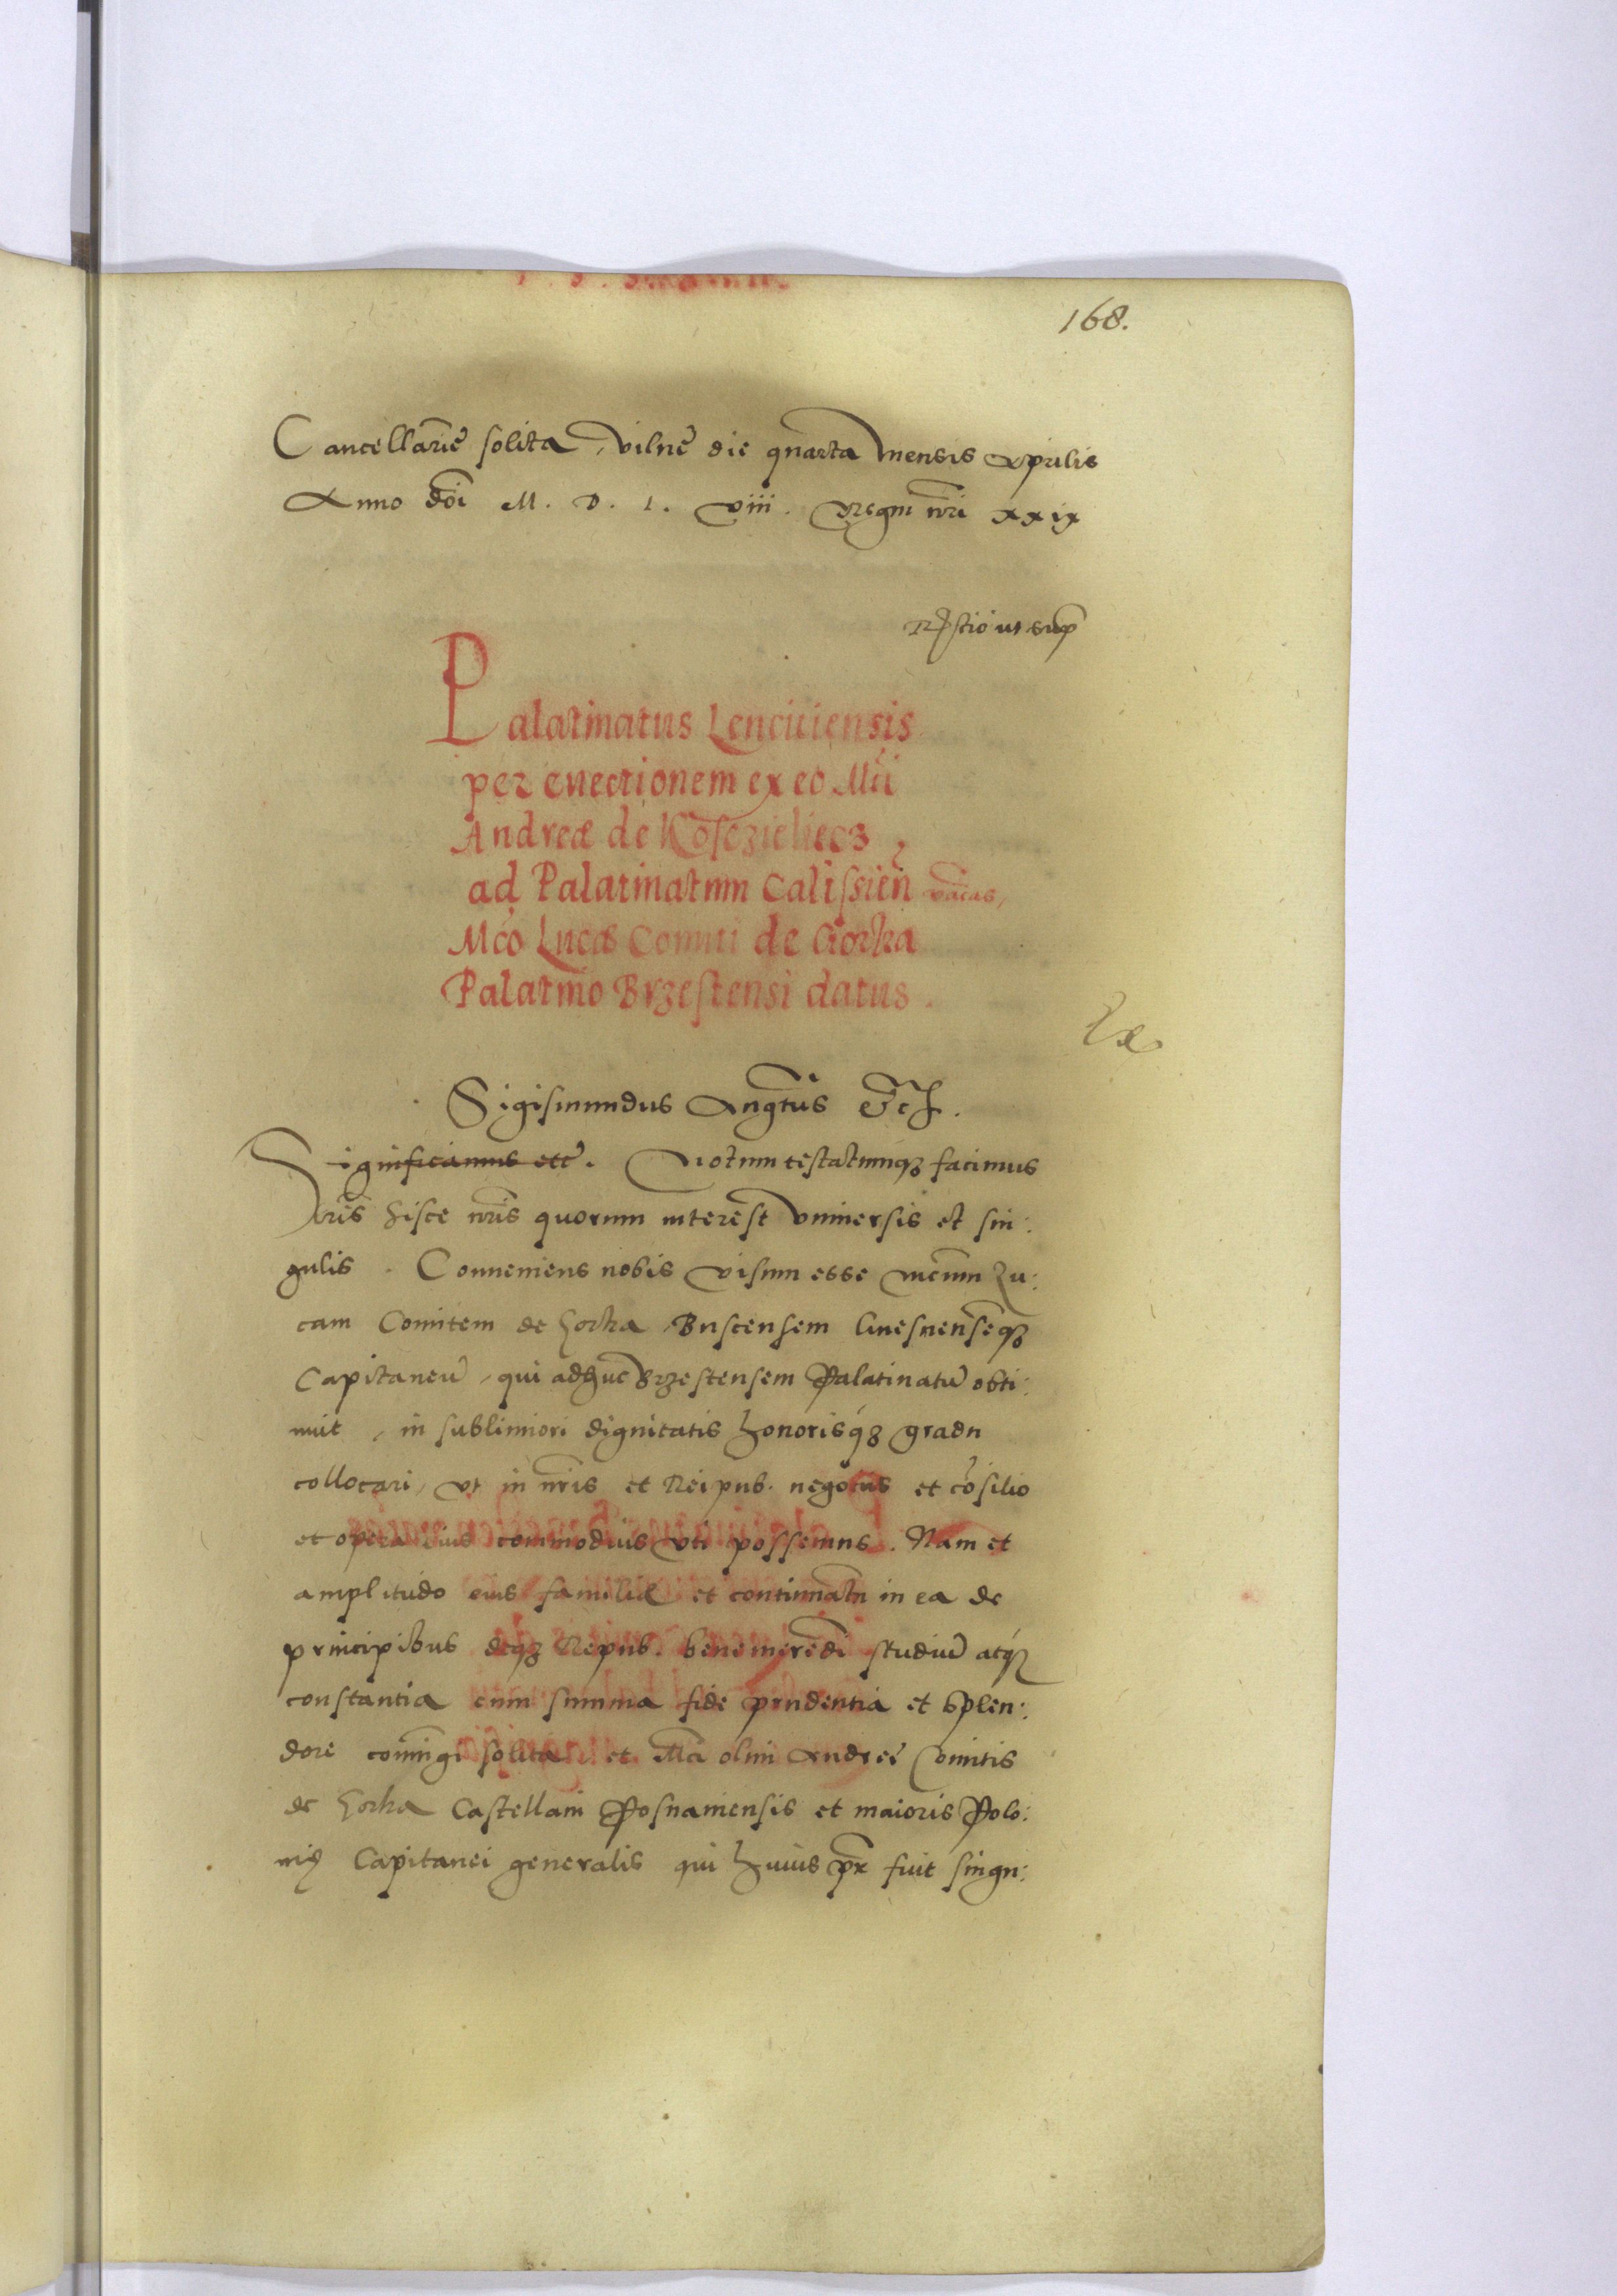 168.
Cancellarie solita, Vilne die quarta mensis Aprilis
Anno doi M. D. L. viii. Regni nri xxix
Rstio ut supr
Palatinatus Lenciciensis
per euectionem ex eo Mci
Andreæ de Kosczieliecz
ad Palatinatum Calissien vacas,
Mco Lucæ Comiti de Gorka
Palatino Brzestensi datus.
Sigismundus Augtus Etc.
Significamus etc. Notum testatumq3 facimus
lris hisce nris quorum interest vniuersis et sin:
gulis. Conueniens nobis visum esse Mcum Lu:
cam Comitem de Gorka Buscensem Gnesnensēq3
Capitaneū, qui adhuc Brzestensem Palatinatū obti:
nuit, in sublimiori dignitatis honorisq3 gradu
collocari, vt in nris et Reipub. negotiis et cōsilio
et opera eius commodius vti possemus. Nam et
amplitudo eius familiæ et continuatū in ea de
principibus deq3 Repub. benemeredi studiū atq3
constantia cum summa fide prudentia et splen:
dore coniungi solita et Mci olim Andreę Comitis
de Gorka Castellani Posnaniensis et maioris Polo:
nię Capitanei generalis qui huius pr fuit singu: